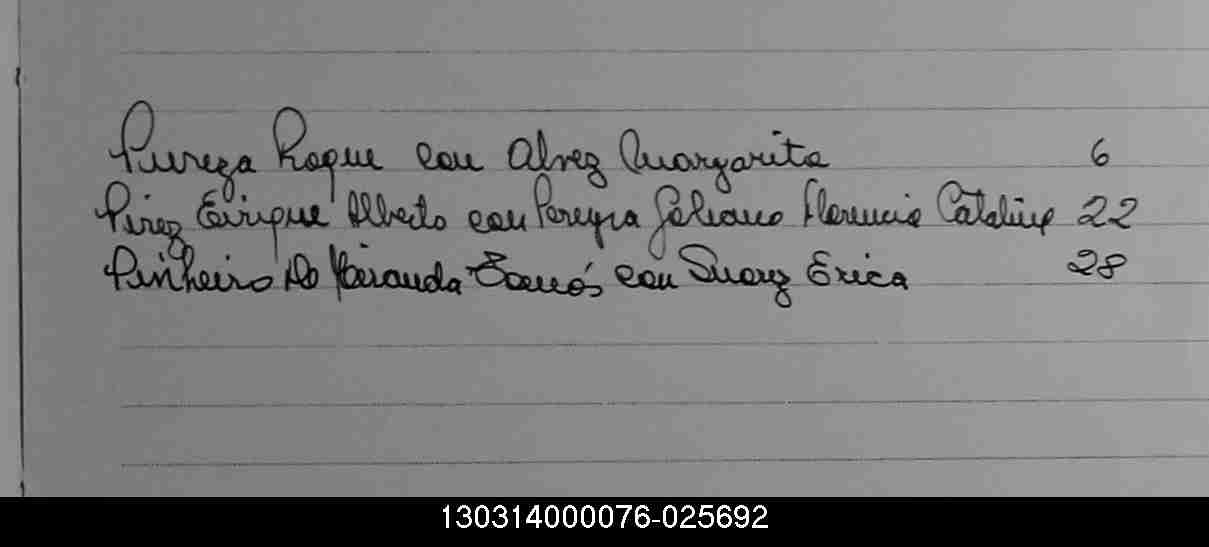 Pureza Roque con Alvez Margarita 6
Pirez Enrique Alberto con Pereyra Galeano Florencia Catalina 22
Pinheiro Do Miranda Tomás con Suarez Erica 28
130314000076-025692